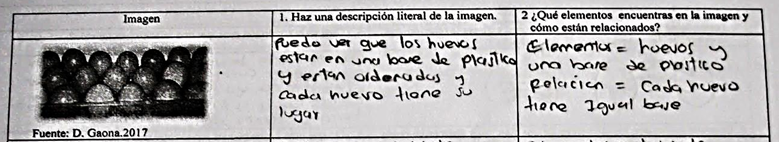 Imagen
1. Haz una descripción literal de la imagen.
2 ¿Qué elementos encuentras en la imagen y
cómo están relacionados?
Puedo ver que los huevos
estan en una base de plastico
y estan ordenados y
cada huevo tiene su
lugar
Elementos = huevos y
una base de plastico
Relacion = Cada huevo
tiene Igual base
Fuente: D. Gaona.2017